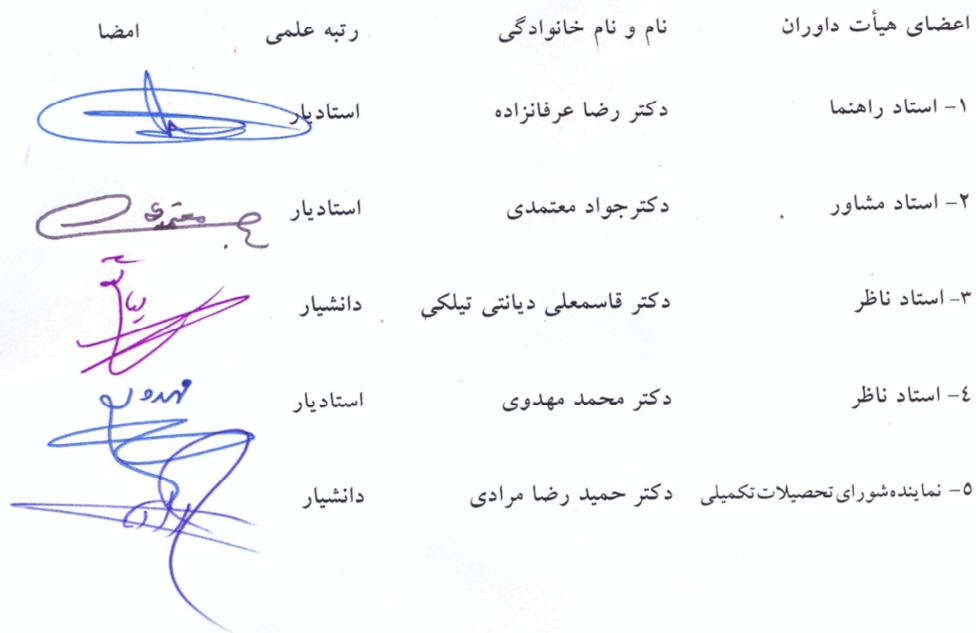 اعضای هیأت داوران نام و نام خانوادگی رتبه علمی امضا
۱- استاد راهنما دکتر رضا عرفانزاده استادیار
۲- استاد مشاور دکترجواد معتمدی استادیار معتمدی
۳- استاد ناظر دکتر قاسمعلی دیانتی تیلکی دانشیار
٤- استاد ناظر دکتر محمد مهدوی استادیار مهدوی
٥- نماینده شورای تحصیلات تکمیلی دکتر حمید رضا مرادی دانشیار